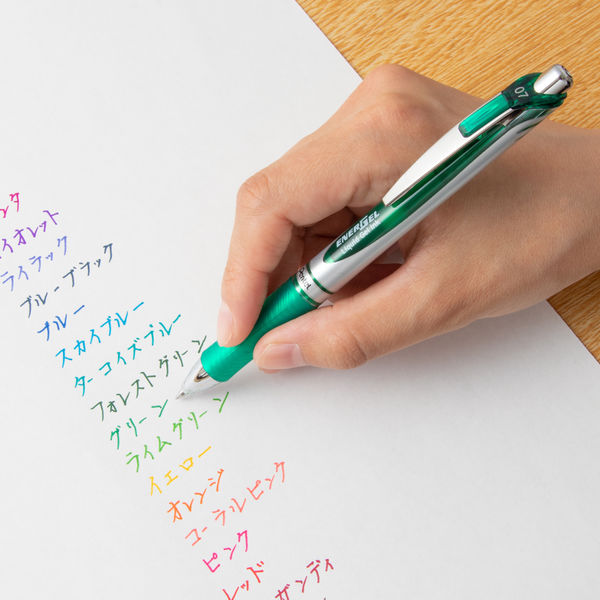 ンタ
イオレット
ライラック
ブルーブラック
ブルー
スカイブルー
ターコイズブルー
フォレストグリーン
グリーン
ライムグリーン
イエロー
オレンジ
コーラルピンク
ピンク
レッド
ガンディ
07
ENERGEL
Liquid Gel Ink